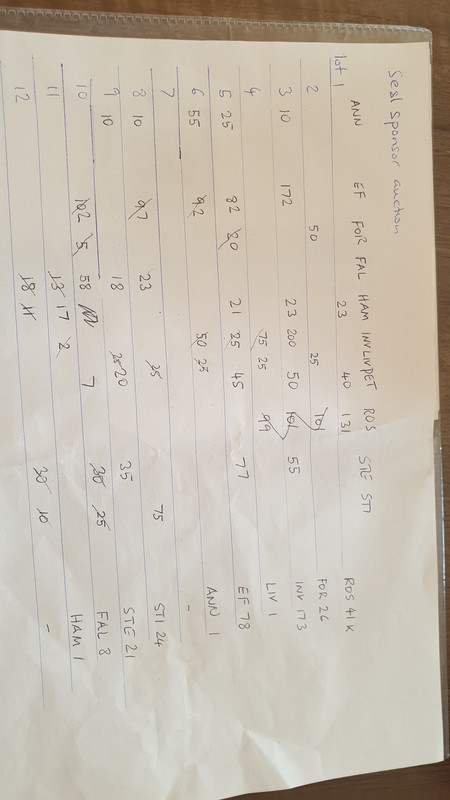 Sesl Sponsor auction
ANN EF FOR FAL HAM INV LIV PET ROS STE STI
lot 1 23 40 131 ROS 41 K
2 50 25 101 FOR 26
3 10 172 23 200 50 101 55 INV 173
4 75 25 99 LIV 1
5 25 82 20 21 25 45 77 EF 78
6 55 92 50 25 ANN 1
7 -
8 10 97 23 25 75 STI 24
9 10 18 25 20 35 STE 21
10 102 5 58 7 30 25 FAL 8
11 13 17 2 HAM 1
12 18 11 30 10 -